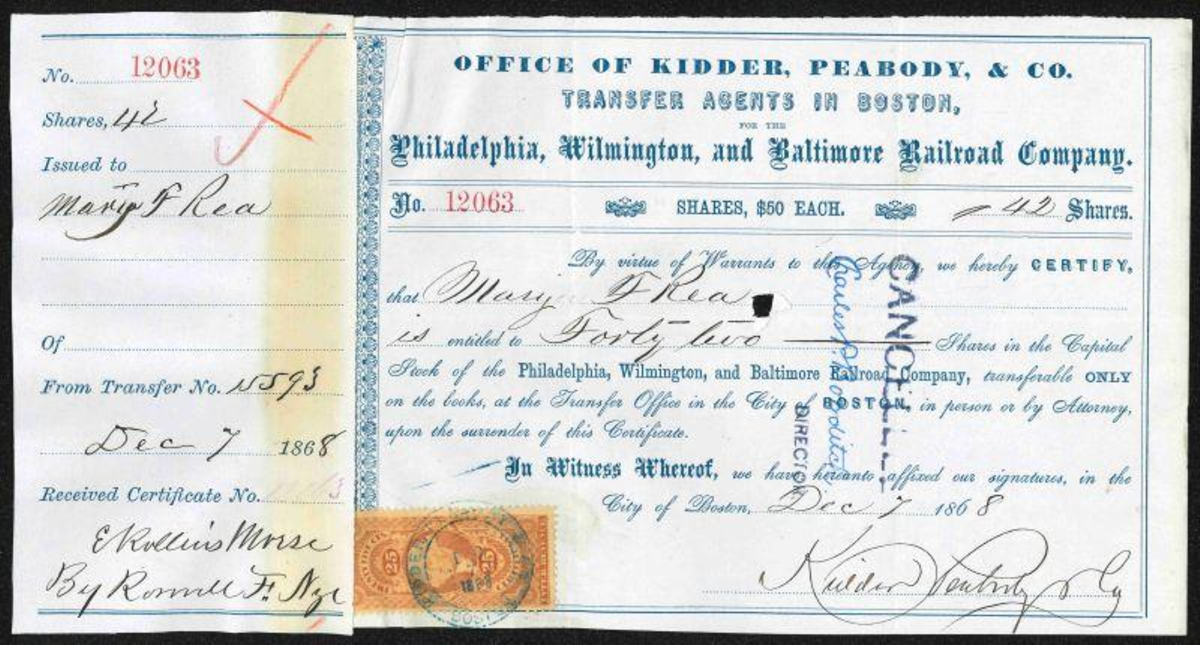 No. 12063
Shares, 42
Issued to
Mary F Rea
Of
From Transfer No. 15593
Dec 7 1868
Received Certificate No.
E Rollins Morse
By Roswell F. Nye
OFFICE OF KIDDER, PEABODY, & CO.
TRANSFER AGENTS IN BOSTON,
FOR THE
Philadelphia, Wilmington, and Baltimore Railroad Company.
No. 12063 SHARES, $50 EACH. 42 Shares.
By virtue of Warrants to this Agency, we hereby CERTIFY,
that Mary F Rea
is entitled to Forty two Shares in the Capital
Stock of the Philadelphia, Wilmington, and Baltimore Railroad Company, transferable ONLY
on the books, at the Transfer Office in the City of BOSTON, in person or by Attorney,
upon the surrender of this Certificate.
In Witness Whereof, we have hereunto affixed our signatures, in the
City of Boston, Dec 7 1868
Kidder Peabody & Co
DIRECTOR
25
25